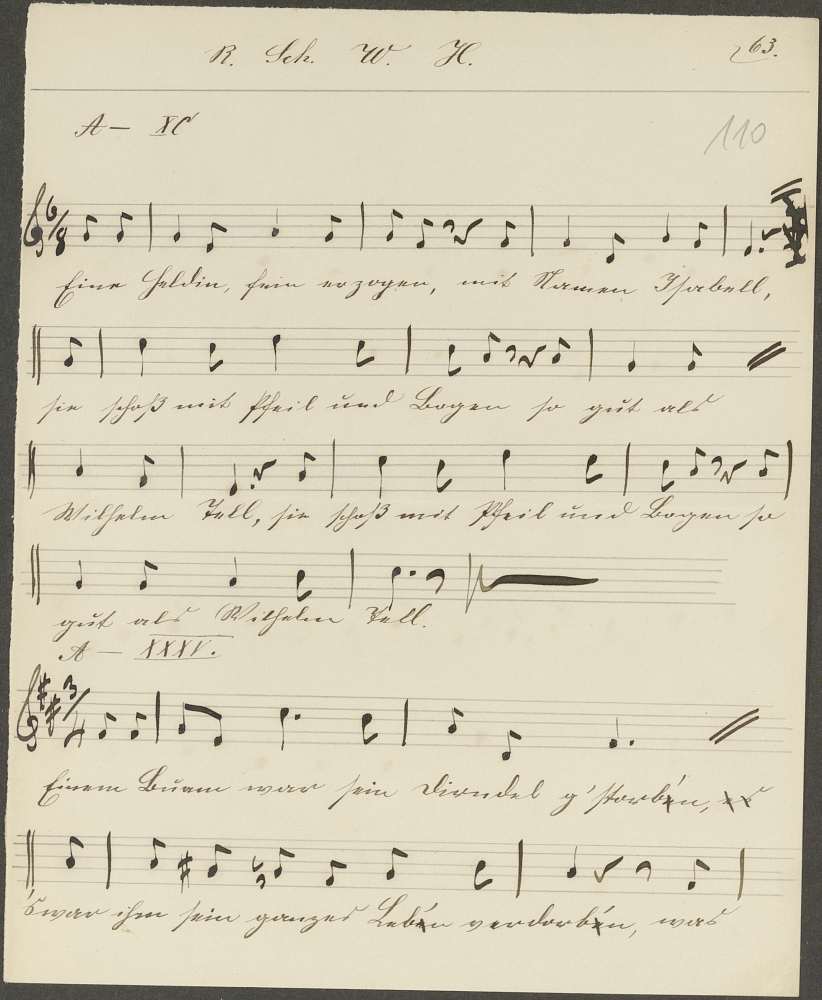 R. Sch. W. H. 63.
A — XC
110
6/8
Eine Heldin, fein erzogen, mit Namen Isabell,
sie schoß mit Pfeil und Bogen so gut als
Wilhelm Tell, sie schoß mit Pfeil und Bogen so
gut als Wilhelm Tell.
A — XXXV.
3/4
Einem Buam war sein Dirndel g'storb'n,
's war ihm sein ganzes Leb'n verdorb'n, was